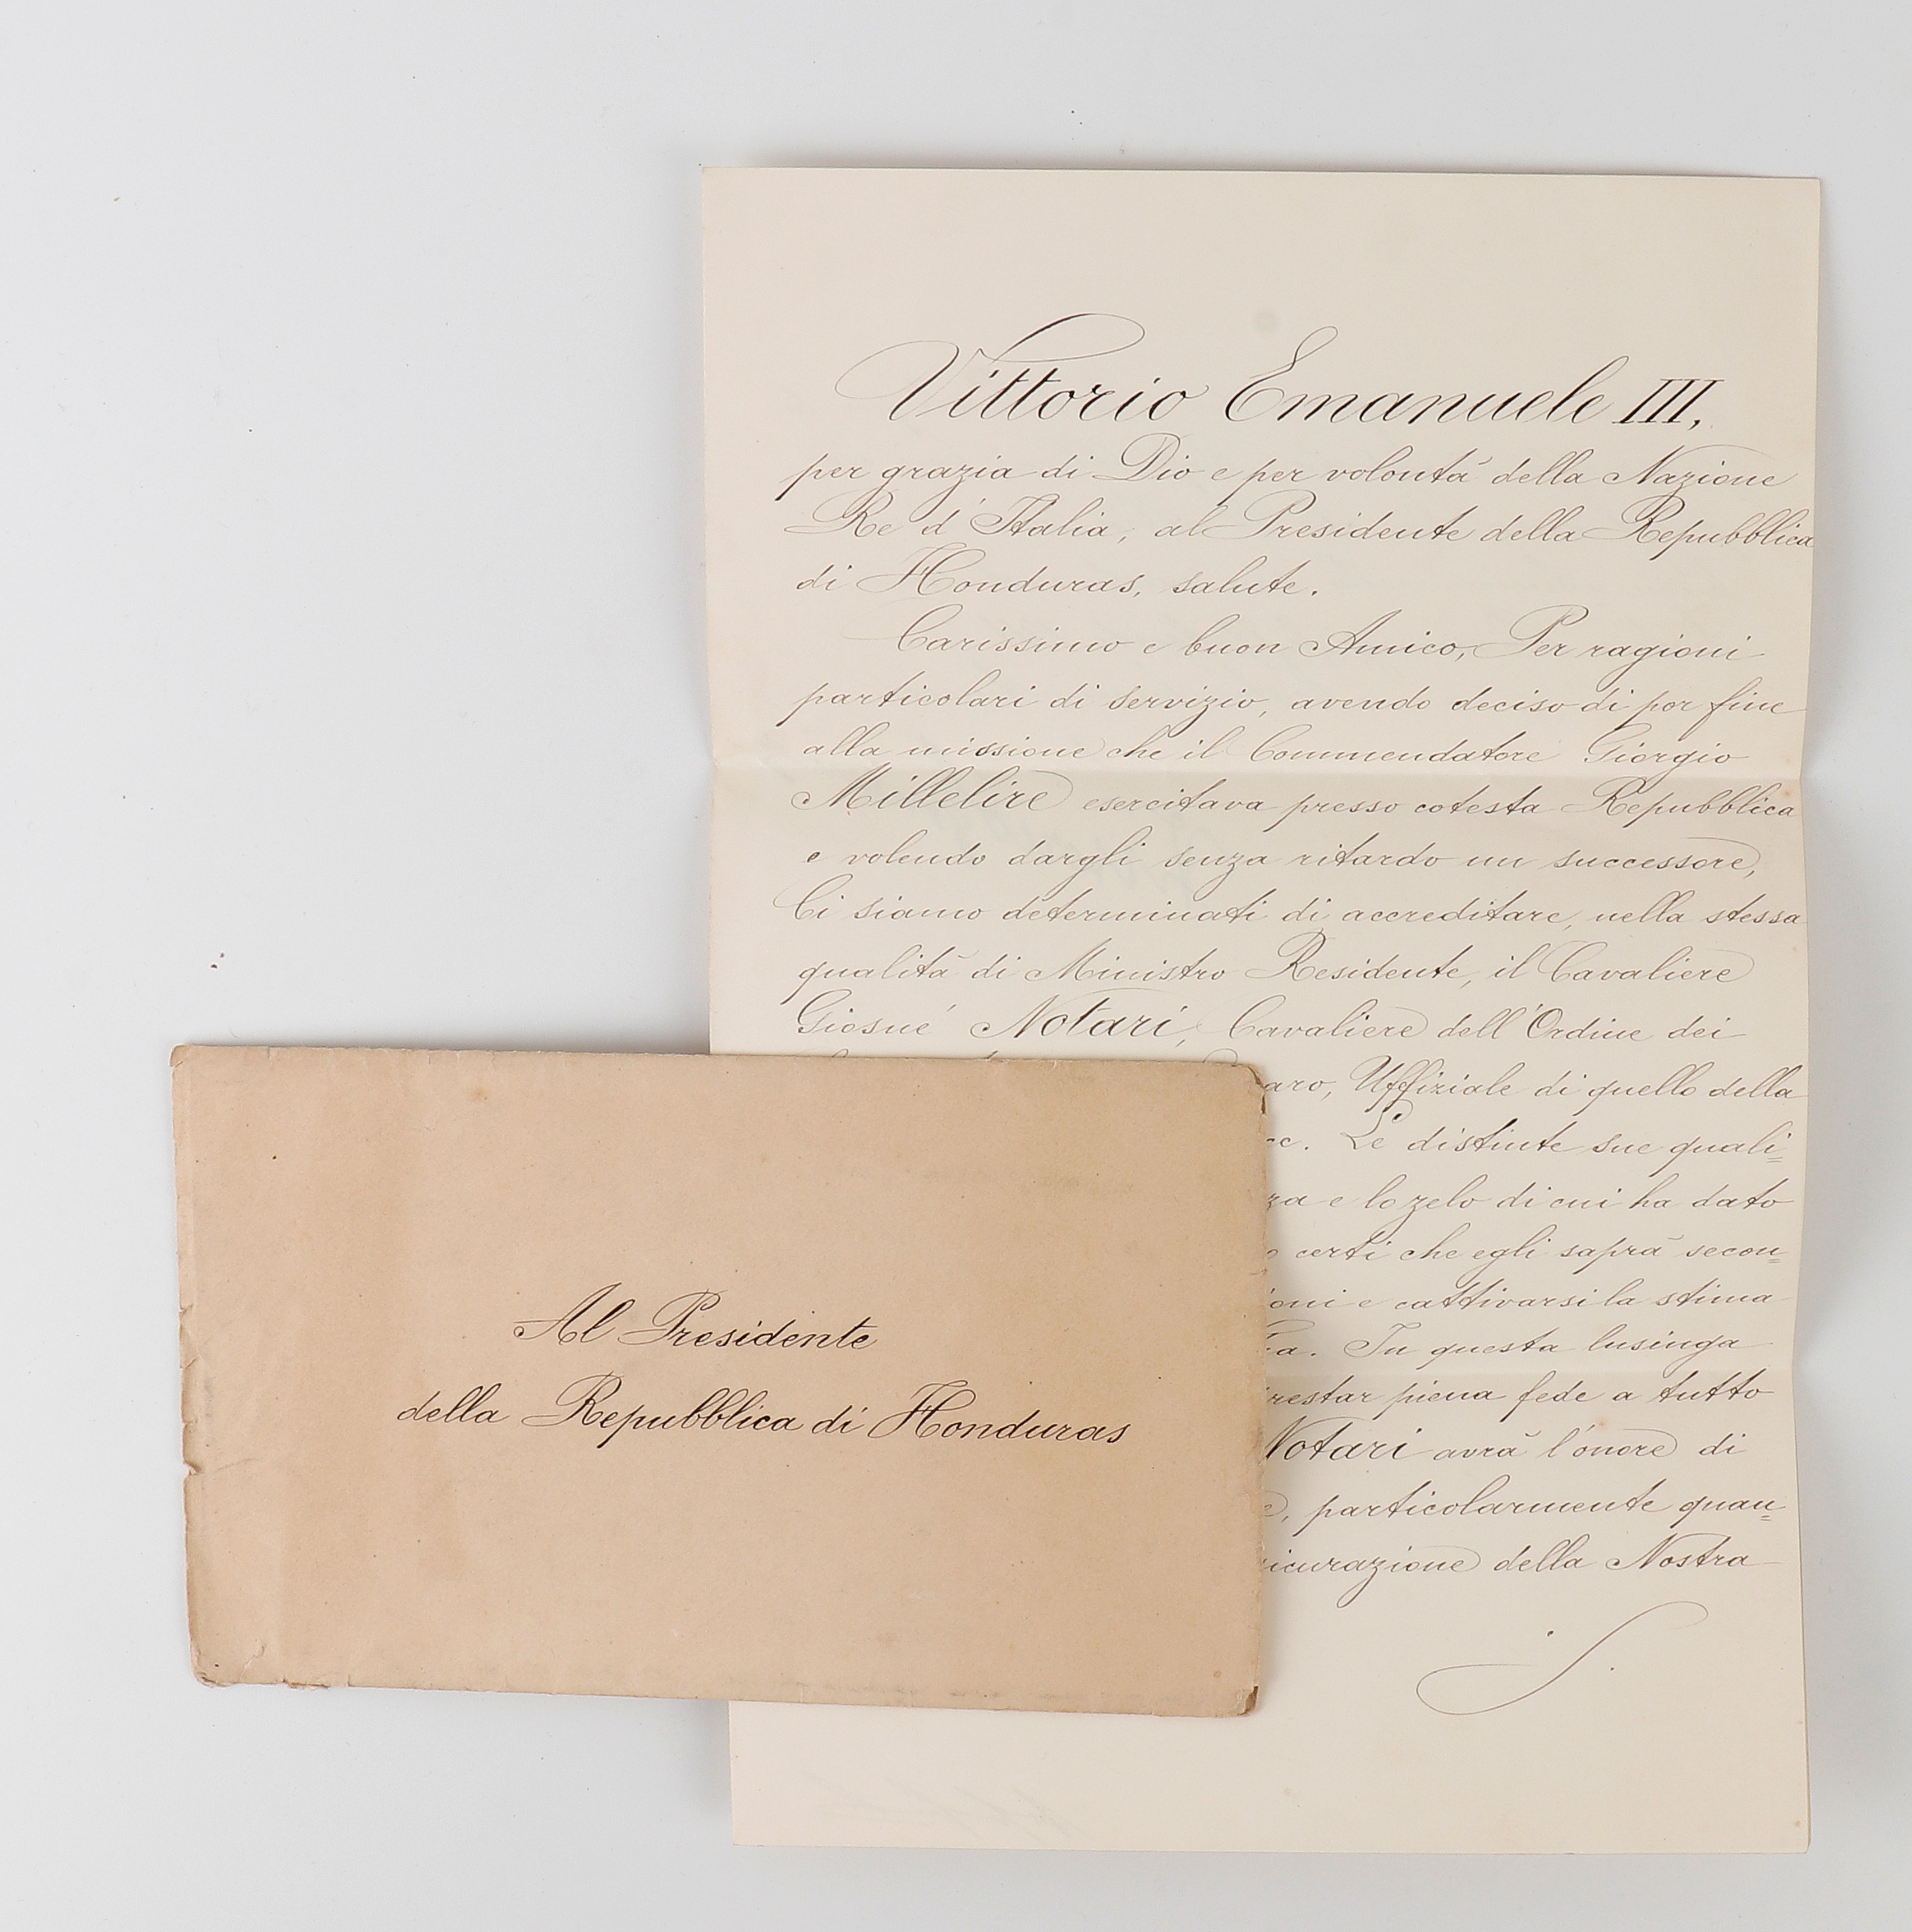 Vittorio Emanuele III,
per grazia di Dio e per volontà della Nazione
Re d'Italia, al Presidente della Repubblica
di Honduras, salute.
Carissimo e buon Amico, Per ragioni
particolari di servizio, avendo deciso di por fine
alla missione che il Commendatore Giorgio
Millelire esercitava presso cotesta Repubblica
e volendo dargli senza ritardo un successore,
Ci siamo determinati di accreditare, nella stessa
qualità di Ministro Residente, il Cavaliere
Giosuè Notari, Cavaliere dell'Ordine dei
aro, Uffiziale di quello della
cc. Le distinte sue quali=
za e lo zelo di cui ha dato
o certi che egli saprà secon=
ioni e cattivarsi la stima
ca. In questa lusinga
restar piena fede a tutto
Notari avrà l'onore di
e, particolarmente quan=
icurazione della Nostra
Al Presidente
della Repubblica di Honduras